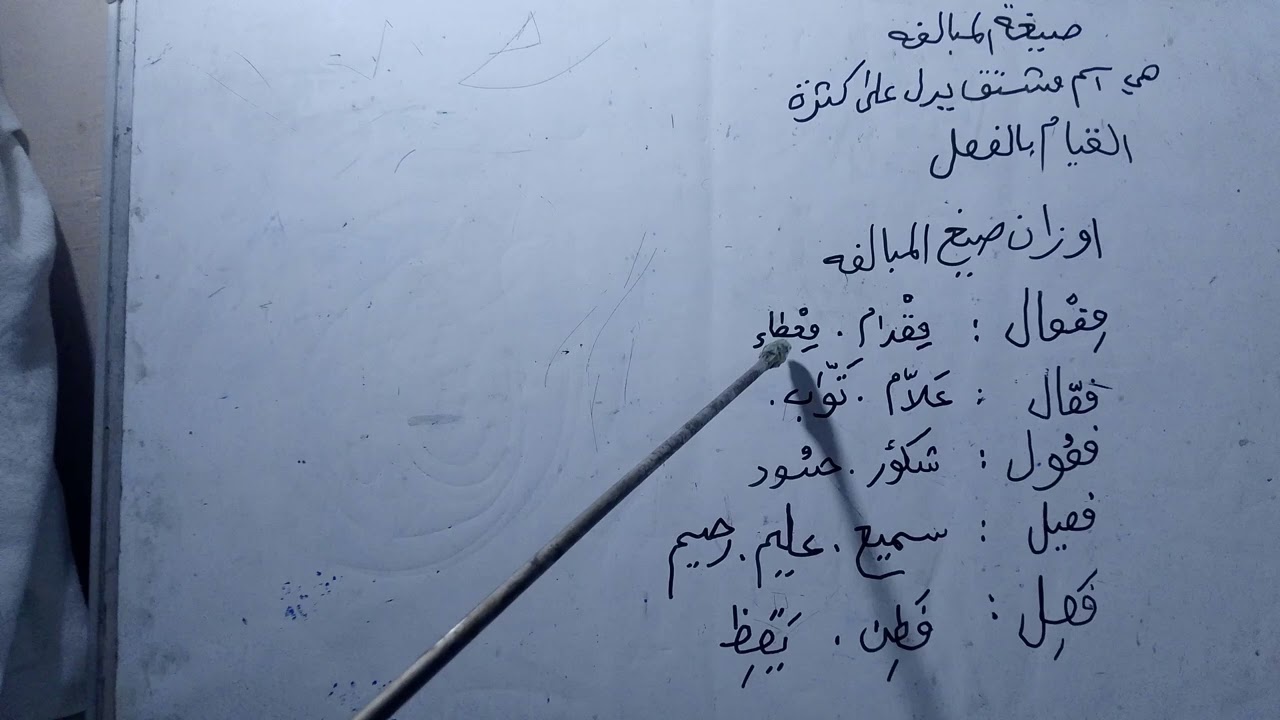 صيغة المبالغه
هي اسم مشتق يدل على كثرة
القيام بالفعل
اوزان صيغ المبالغه
مِفْعال : مِقْدام . مِعْطاء
فَعّال : عَلاّم . تَوّاب .
فَعُول : شكوُر . حسود
فعيل : سميع . عليم . رحيم
فَعِل : فَطِن . يَقِظِ